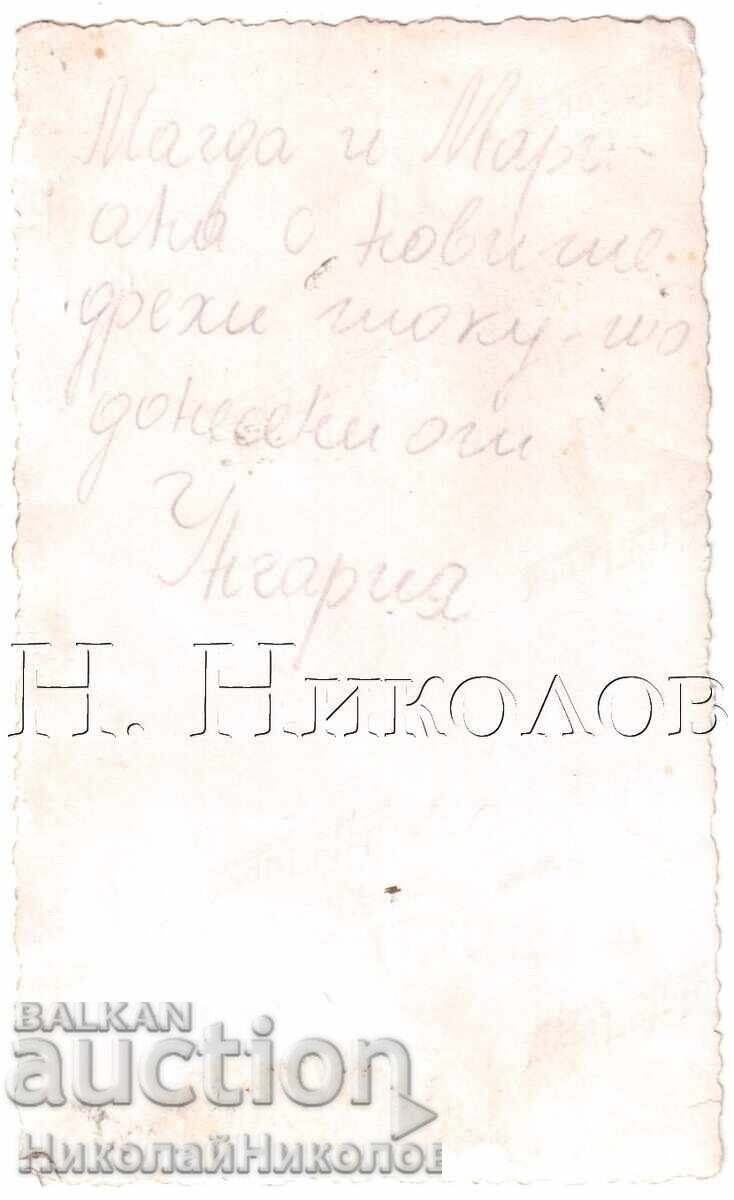 Магда и Мари-
ана с новите
дрехи току-що
донесени от
Унгария
Н. Николов
BALKAN
auction
НиколайНиколов